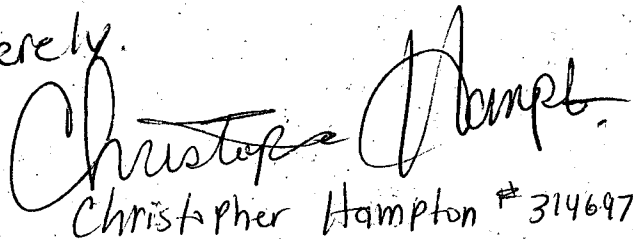 erely.
Christophe Hampt.
Christopher Hampton # 314697